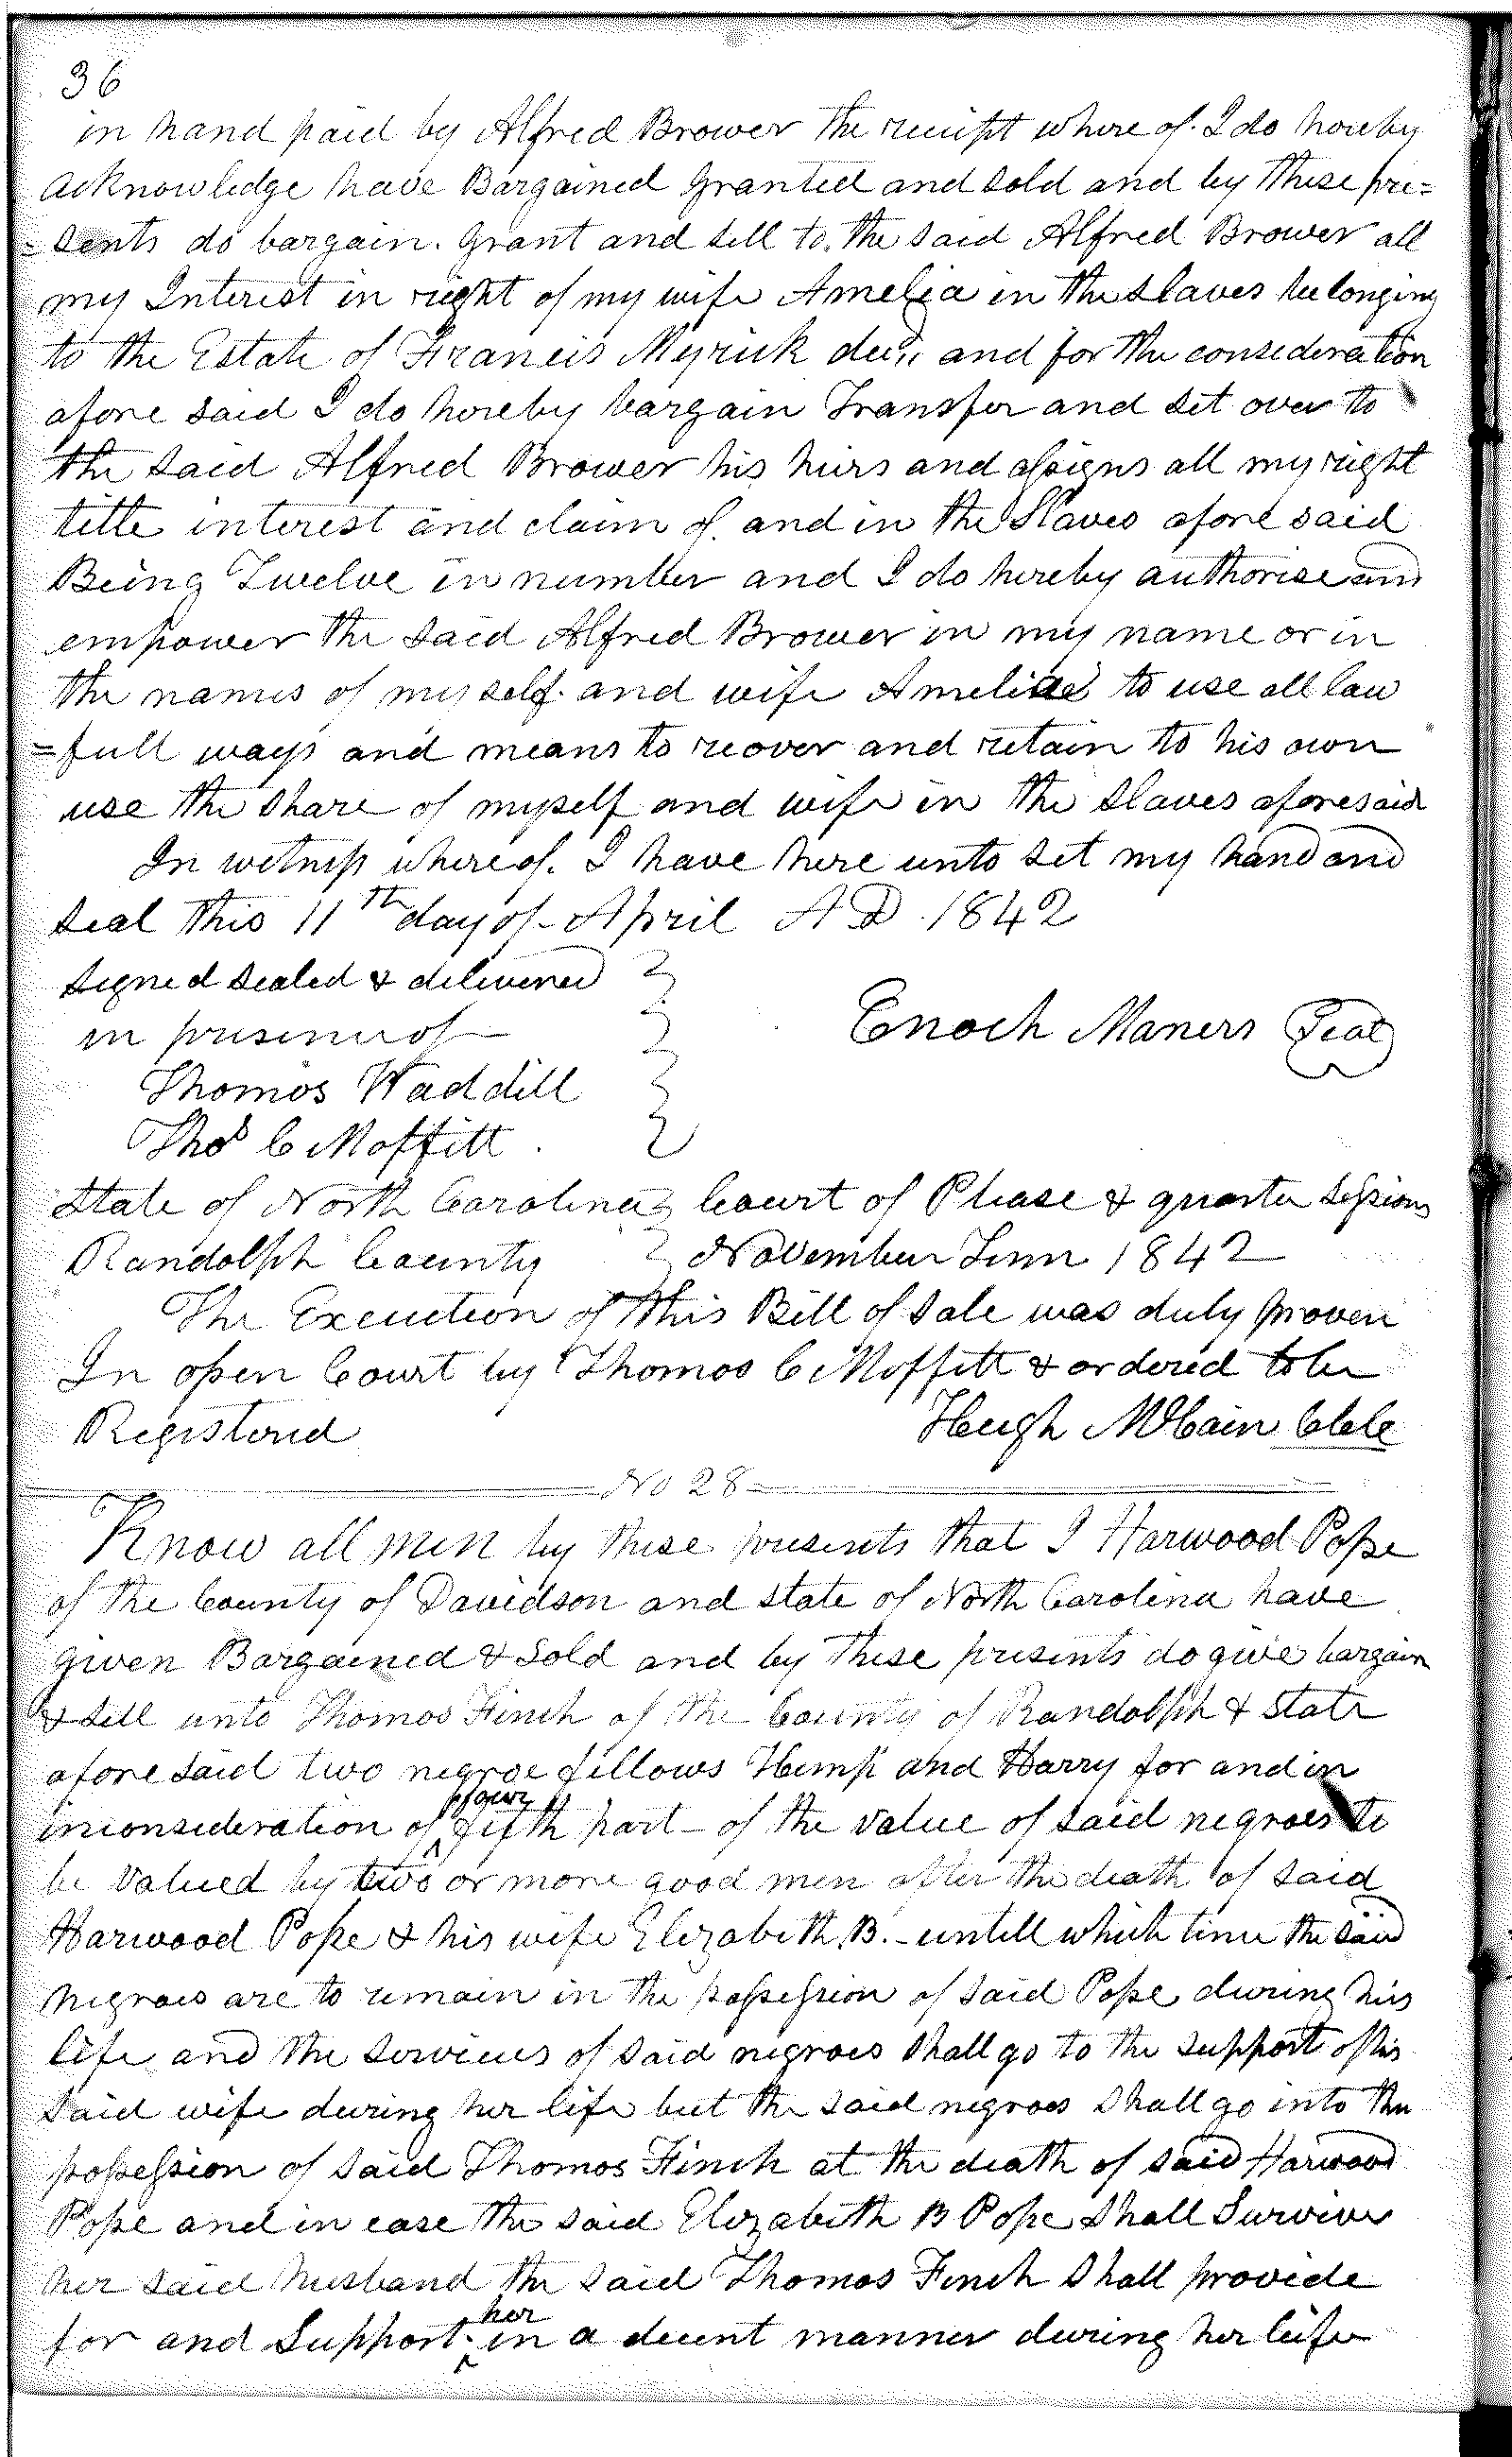 36
in hand paid by Alfred Brower the receipt where of. I do hereby
acknowledge have Bargained Granted and sold and by these pre=
=sents do bargain. Grant and sell to. the said Alfred Brower all
my Interest in right of my wife Amelia in the slaves belonging
to the Estate of Francis Myrick decd., and for the consideration
afore said I do hereby bargain Transfer and set over to
the said Alfred Brower his heirs and assigns all my right
title interest and claim of. and in the Slaves afore said
Being Twelve in number and I do hereby authorise and
empower the said Alfred Brower in my name or in
the names of myself. and wife Amelia to use all law
=full ways and means to recover and retain to his own
use the share of myself and wife in the slaves aforesaid
In witness whereof. I have here unto set my hand and
seal this 11th day of April A D. 1842
signed sealed & delivered
in presence of
Enoch Maners Seal
Thomas Waddill
Thos C Moffitt.
State of North Carolina Court of Please & quarter Sessions
Randolph County November Term 1842
The Execution of this Bill of sale was duly proven
In open Court by Thomas C Moffitt & ordered to be
Registered Hugh McCain Clk
No 28
Know all men by these presents that I Harwood Pope
of the County of Davidson and state of North Carolina have
given Bargained & Sold and by these presents do give bargain
& sell unto Thomas Finch of the County of Randolph & State
afore said two negroe fellows Hemp and Harry for and in
inconsideration of fifth part - of the value of said negroes to
be valued by two or more good men after the death of said
Harwood Pope & his wife Elizabeth B. - untill which time the said
negroes are to remain in the possession of said Pope during his
life and the services of said negroes shall go to the support of his
said wife during her life but the said negroes shall go into the
possession of said Thomas Finch at the death of said Harwood
Pope and in case the said Elizabeth B Pope shall Survive
her said husband the said Thomas Finch shall provide
for and Support. her in a decent manner during her life